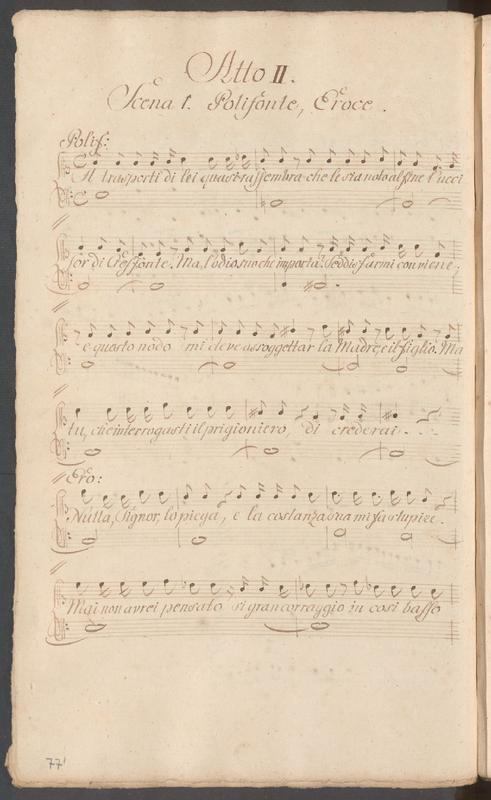 Atto II.
Scena 1. Polifonte, Eroce.
Polif:
Ai trasporti di lei quasi rassembra che le sia noto al fine l'ucci
sor di Cresfonte. Ma, l'odio suo che importa? Soddisfarmi conviene.
e questo nodo mi deve assoggettar la Madre, e il figlio. Ma
tu, che interrogasti il prigioniero, di crederai.
Ero:
Nulla, Signor, lo piega, e la costanza sua mi fa stupire.
Mai non avrei pensato sì gran corraggio in così basso
77'